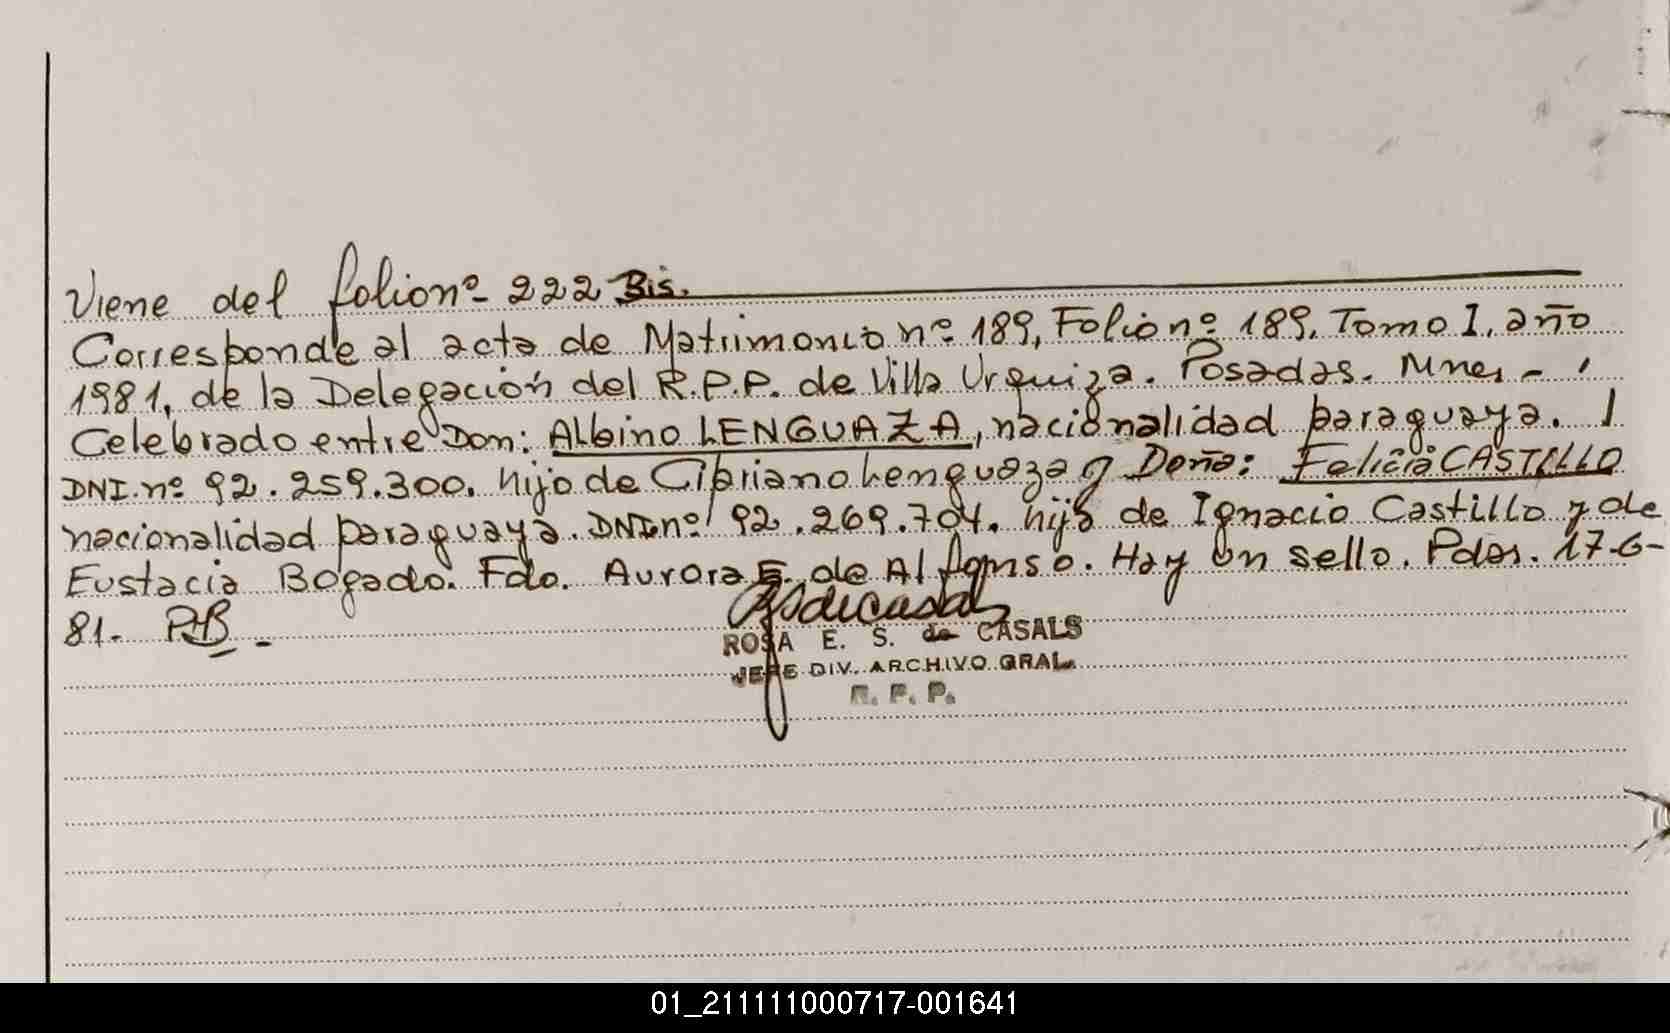 Viene del folio nº 222 Bis.
Corresponde al acta de Matrimonio nº 189, Folio nº 189, Tomo I, año
1981, de la Delegación del R.P.P. de Villa Urquiza. Posadas. Mnes -
Celebrado entre Don: Albino LENGUAZA, nacionalidad paraguaya.
DNI. nº 92.259.300. hijo de Cipriano Lenguaza y Doña: Felicia CASTILLO
nacionalidad paraguaya. DNI nº 92.269.704. hija de Ignacio Castillo y de
Eustacia Bogado. Fdo. Aurora E. de Alfonso. Hay un sello. Pdas. 17-6-
81-
ROSA E. S. de CASALS
JEFE DIV. ARCHIVO GRAL.
R. P. P.
01_211111000717-001641